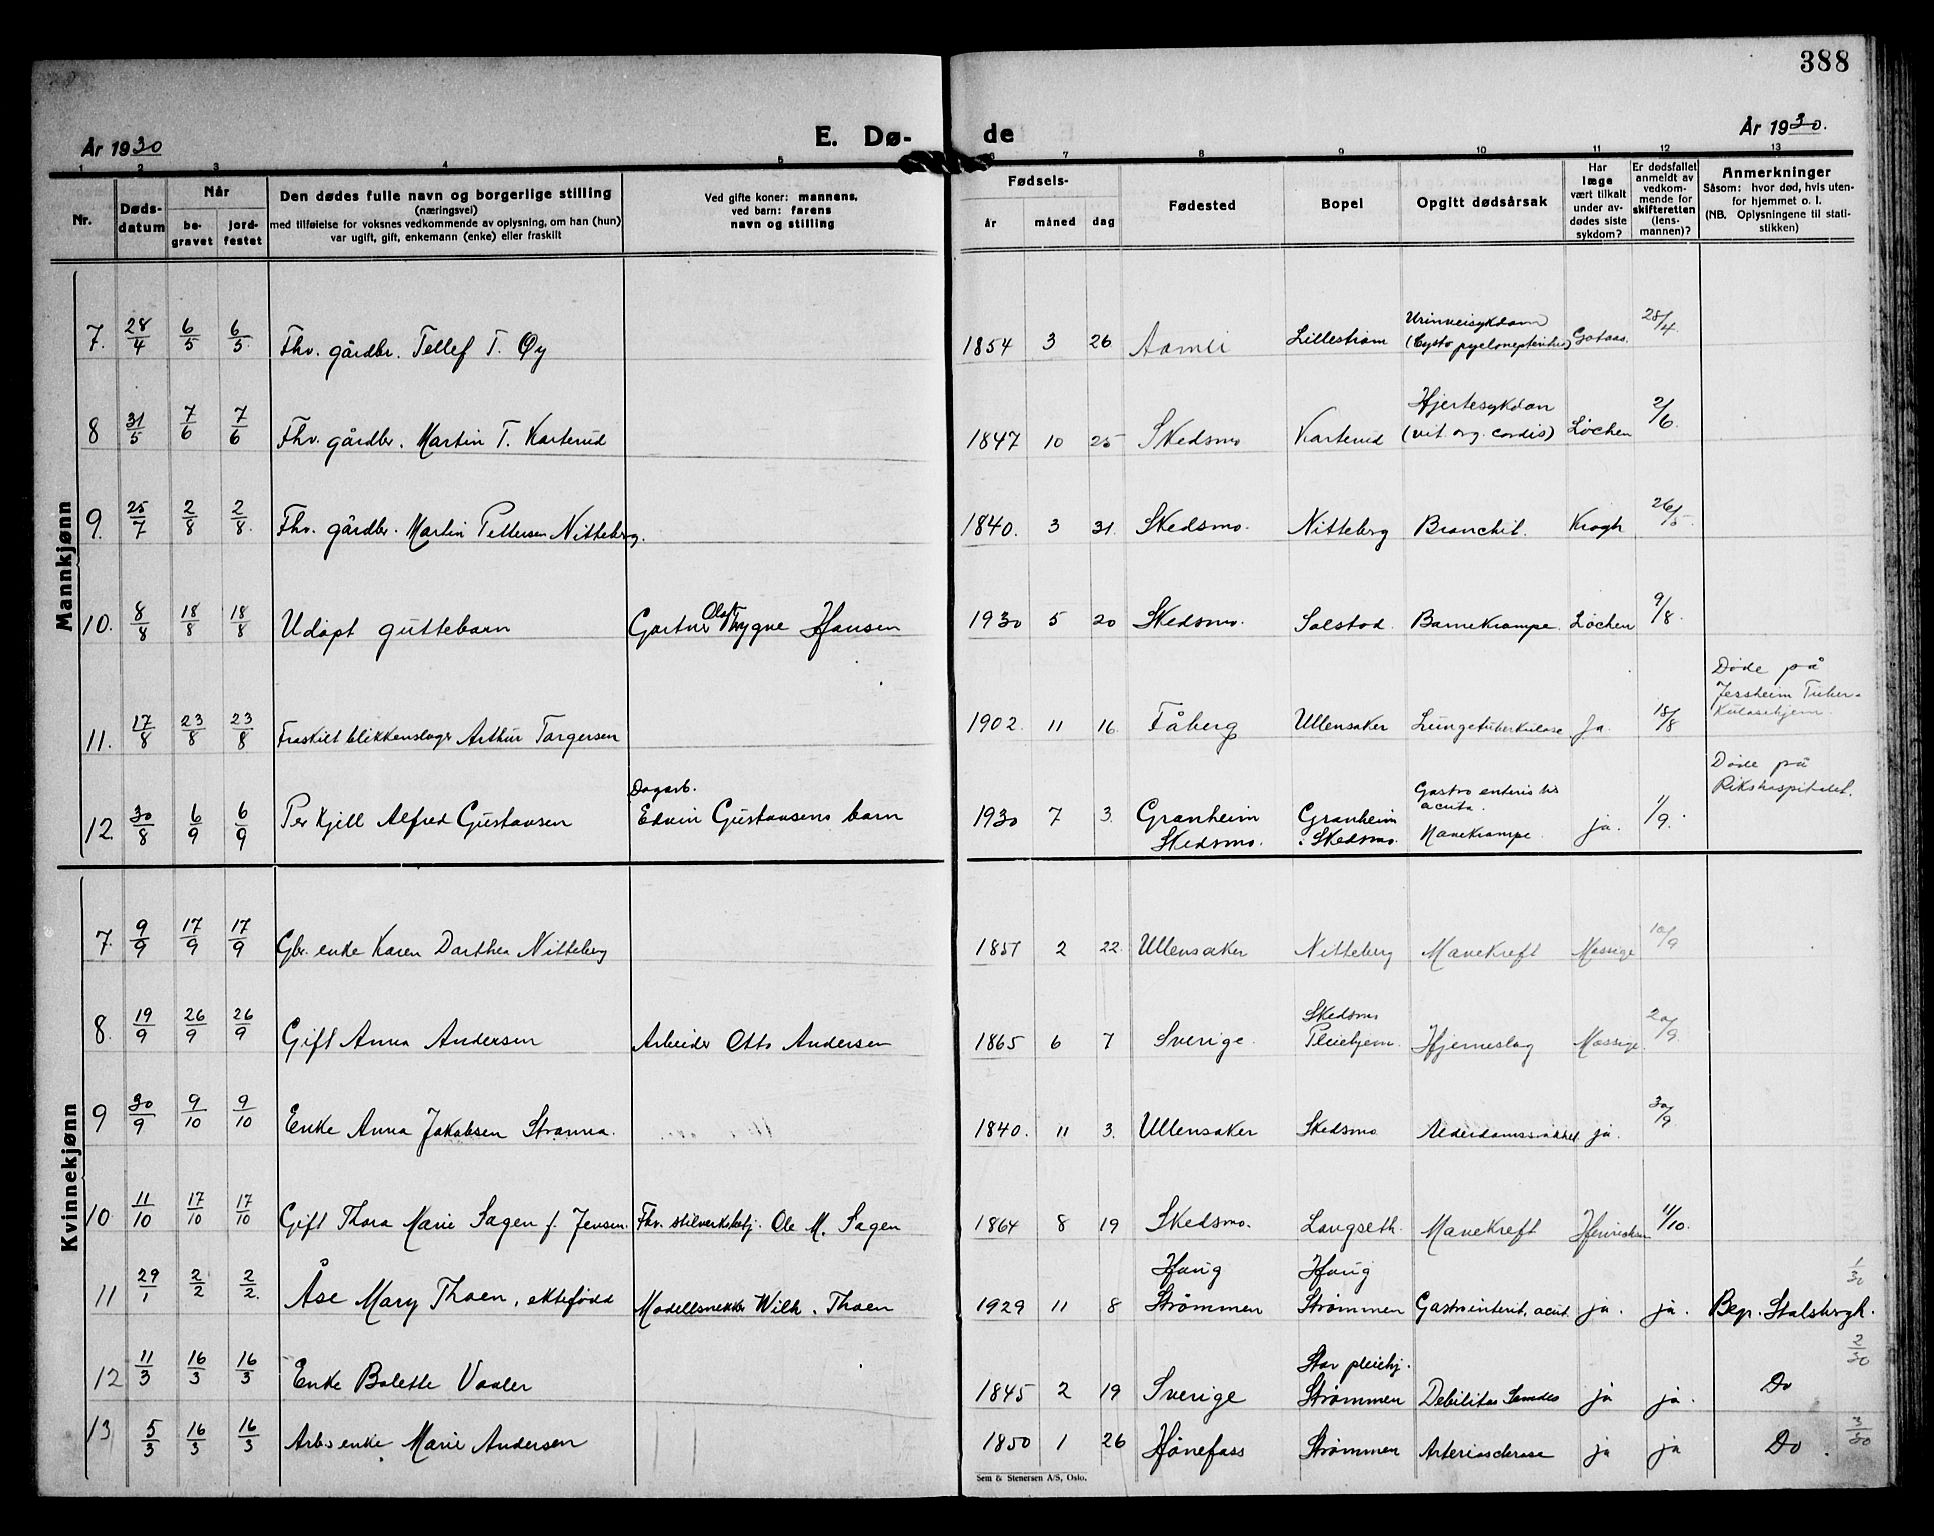 388
År 1930
E. Dø-
de
År 1930.
1 2 3 4 5 6 7 8 9 10 11 12 13
Nr.
Døds-
datum
Når
be-
gravet
jord-
festet
Den dødes fulle navn og borgerlige stilling
(næringsvei)
med tilføielse for voksnes vedkommende av oplysning, om han (hun)
var ugift, gift, enkemann (enke) eller fraskilt
Ved gifte koner: mannens,
ved barn: farens
navn og stilling
Fødsels-
år måned dag
Fødested
Bopel
Opgitt dødsårsak
Har
læge
vært tilkalt
under av-
dødes siste
sykdom?
Er dødsfallet
anmeldt av
vedkom-
mende for
skifteretten
(lens-
mannen)?
Anmerkninger
Såsom: hvor død, hvis uten-
for hjemmet o. l.
(NB. Oplysningene til stati-
stikken)
Mannkjønn
7. 28/4 6/5 6/5. Fhv. gårdbr. Tellef T. Øy 1854 3 26 Aamli Lillestrøm Urinveisykdom 28/4.
8 31/5 7/6 7/6 Fhv. gårdbr. Martin T. Karterud 1847 10 25 Skedsmo Karterud Hjertesykdom
(vit. org. cordis) Løchen 2/6.
9. 25/7 2/8 2/8. Fhv. gårdbr. Martin Pettersen Nitteberg. 1840. 3 31. Skedsmo. Nitteberg Bronchit. Krogh 26/5
10. 8/8 18/8 18/8 Udøpt guttebarn Gartner Olaf Trygve Hansen 1930 5 20 Skedsmo. Solstad. Barnekrampe. Løchen 9/8.
11. 17/8 23/8 23/8 Fraskilt blikkenslager Arthur Torgersen 1902. 11 16. Fåberg Ullensaker Lungetuberkulose Ja. 18/8 Døde på
Jessheim Tuber-
kulosehjem.
12 30/8 6/9 6/9 Per Kjell Alfred Gustavsen Dagarb.
Edvin Gustavsens barn 1930 7 3. Granheim
Skedsmo. Granheim
Skedsmo. Gastro enteritis
acuta. ja. 1/9. Døde på
Rikshospitalet.
Kvinnekjønn
7. 9/9 17/9 17/9 Gbr. enke Karen Dorthea Nitteberg 1851 2 22. Ullensaker Nitteberg Mavekreft Mossige 10/9
8. 19/9 26/9 26/9 Gift Anna Andersen Arbeider Otto Andersen 1865 6 7 Sverige. Skedsmo
Pleiehjem. Hjerneslag Mossige. 20/9.
9 30/9 9/10 9/10 Enke Anna Jakobsen Strømna. 1840. 11 3. Ullensaker Skedsmo Alderdomssvakhet ja. 30/9
10. 11/10 17/10 17/10 Gift Thora Marie Sagen f. Jensen. Fhv. stilverksbetj. Ole M. Sagen 1864 8 19 Skedsmo. Langseth. Mavekreft Henriksen 11/10.
11 29/1 2/2 2/2. Åse Mary Thoen, ektefødd Modellsnekker Wilh. Thoen 1929 11 8 Haug
Strømmen Haug
Strømmen Gastrointerit, acut. ja. ja. Begr. Stalsbergh. 1/30
12 11/3 16/3 16/3 Enke Bolette Vaaler 1845 2 19 Sverige Star pleiehj.
Strømmen Debilitas ja ja. Do 2/30
13 5/3 16/3 16/3 Arb.enke Marie Andersen 1850 1 26 Hönefoss Strømmen Arteriosclerose ja ja Do. 3/30
Sem & Stenersen A/S, Oslo.